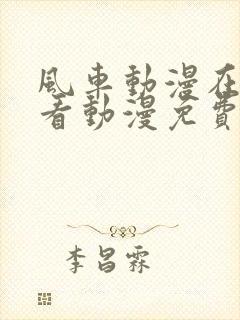 風車動漫在
看動漫免費
李昌霖